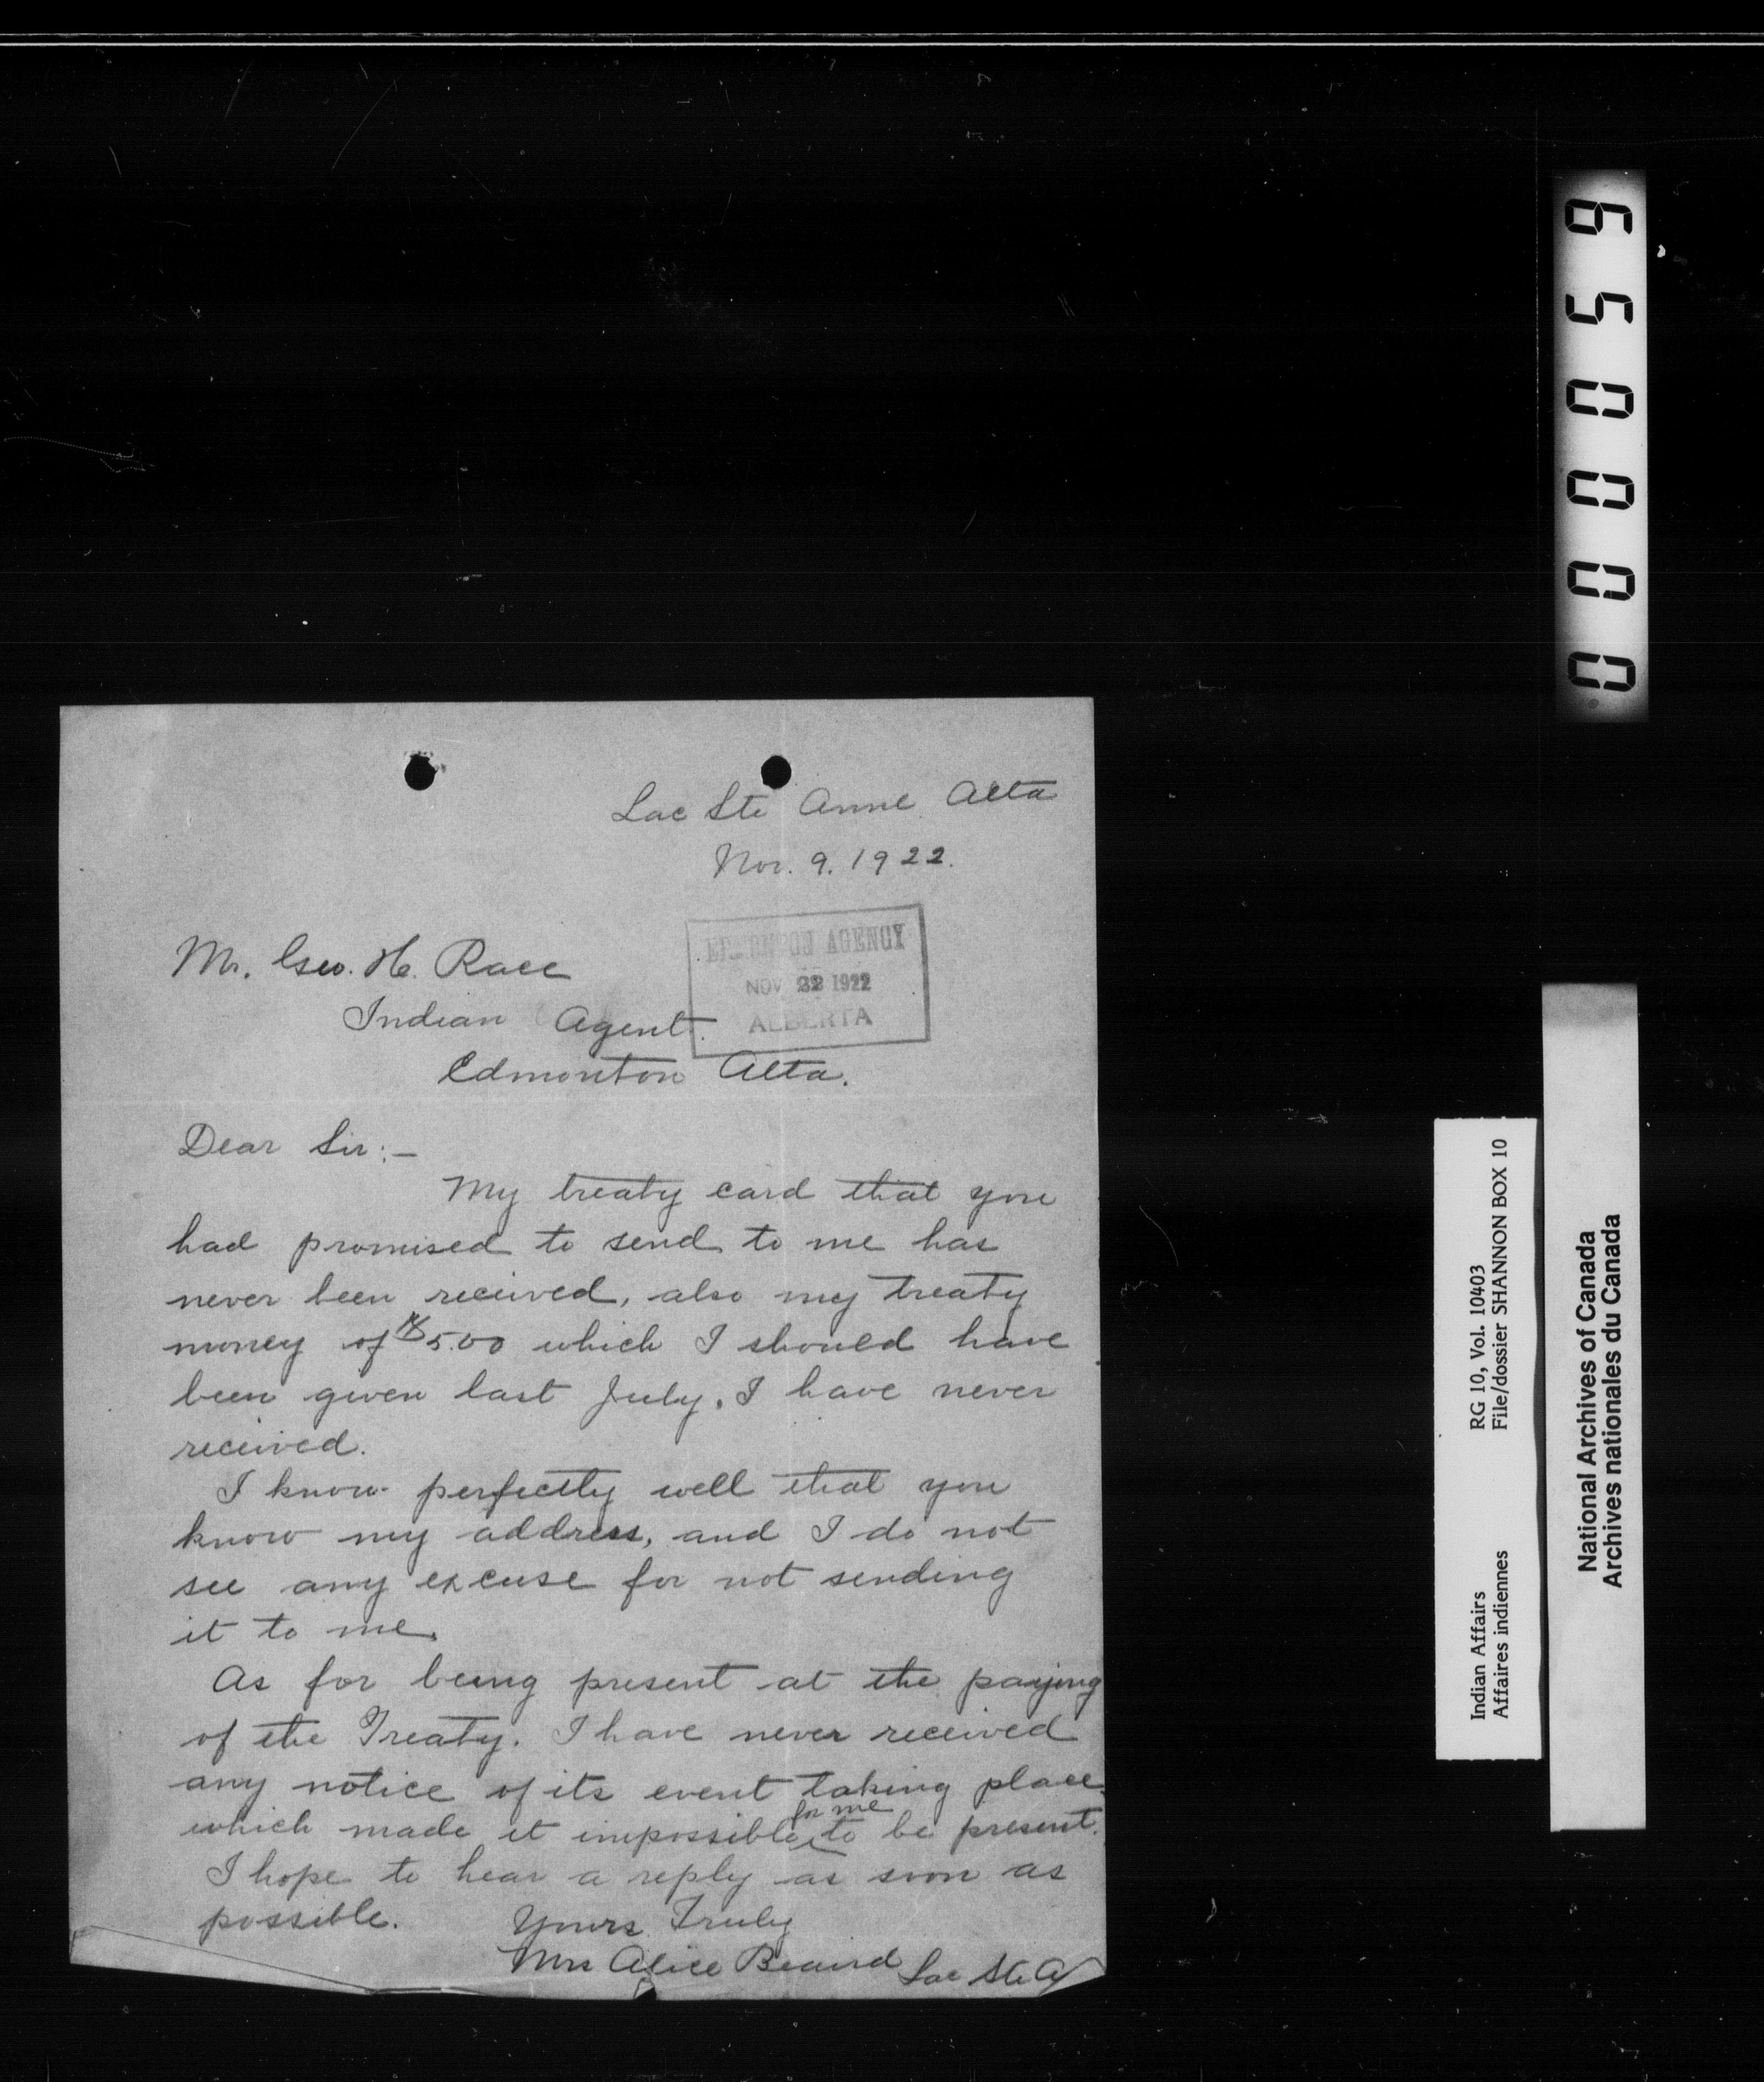 Lac Ste Anne Alta
Nov. 9. 1922.
EDMONTON AGENCY
NOV 22 1922
ALBERTA
Mr. Geo. H. Race
Indian Agent.
Edmonton Alta.
Dear Sir:-
My treaty card that you
had promised to send to me has
never been received, also my treaty
money of $5.00 which I should have
been given last July. I have never
received.
I know perfectly well that you
know my address, and I do not
see any excuse for not sending
it to me.
As for being present at the paying
of the Treaty. I have never received
any notice of its event taking place
which made it impossible for me to be present.
I hope to hear a reply as soon as
possible. Yours Truly
Mrs Alice Lac Ste A
000059
Indian Affairs RG 10, Vol. 10403
Affaires indiennes File/dossier SHANNON BOX 10
National Archives of Canada
Archives nationales du Canada